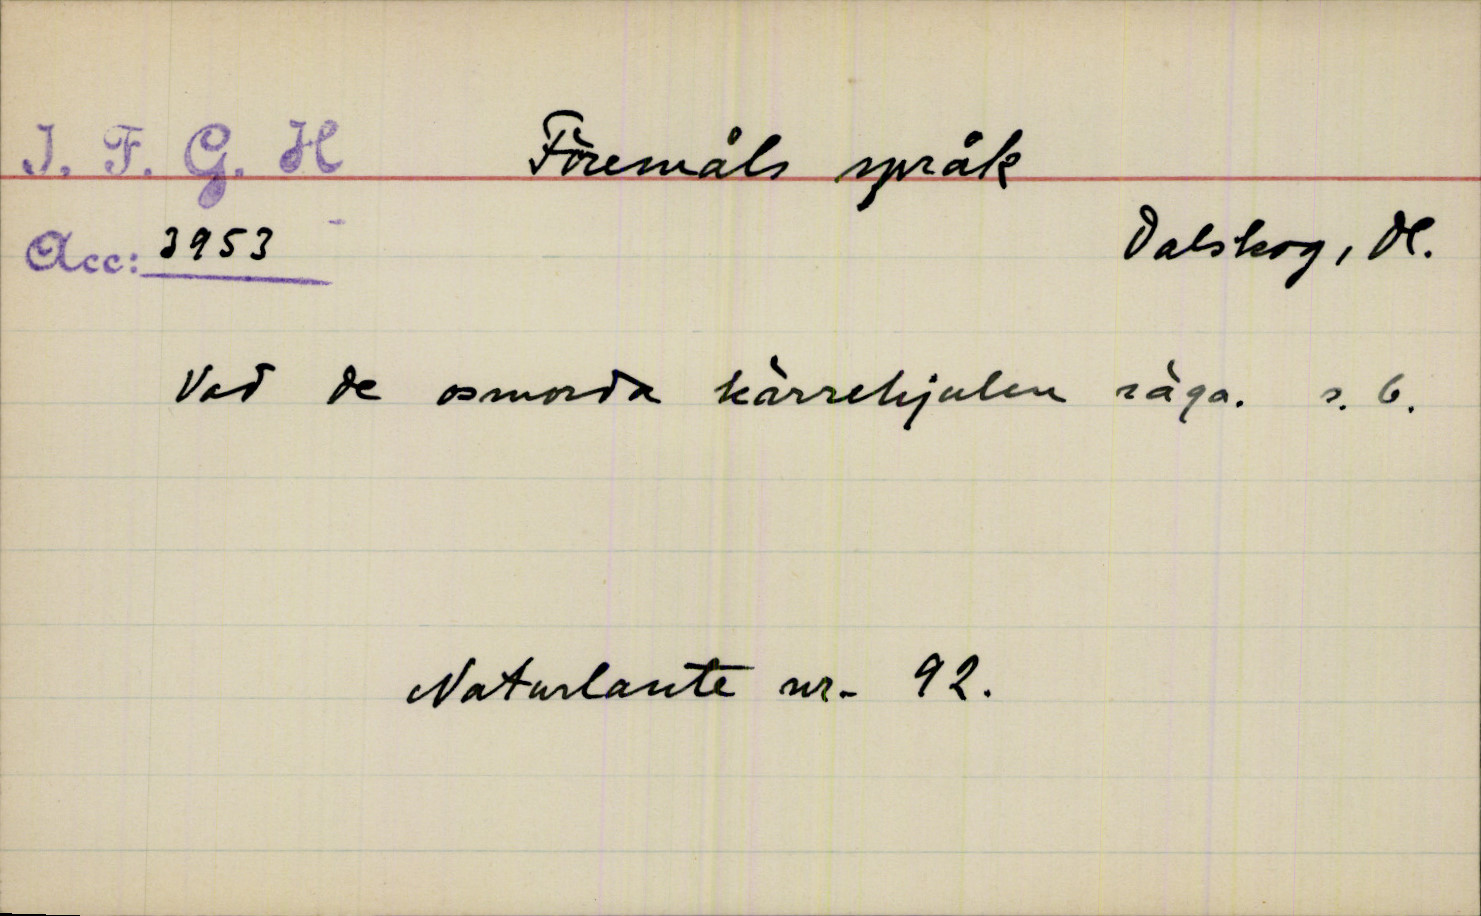 I. F. G. H
Föremåls språk
Acc: 3953
Dalskog, Dl.
Vad de osmorda kärrehjulen säga. s. 6.
Naturlaute nr. 92.